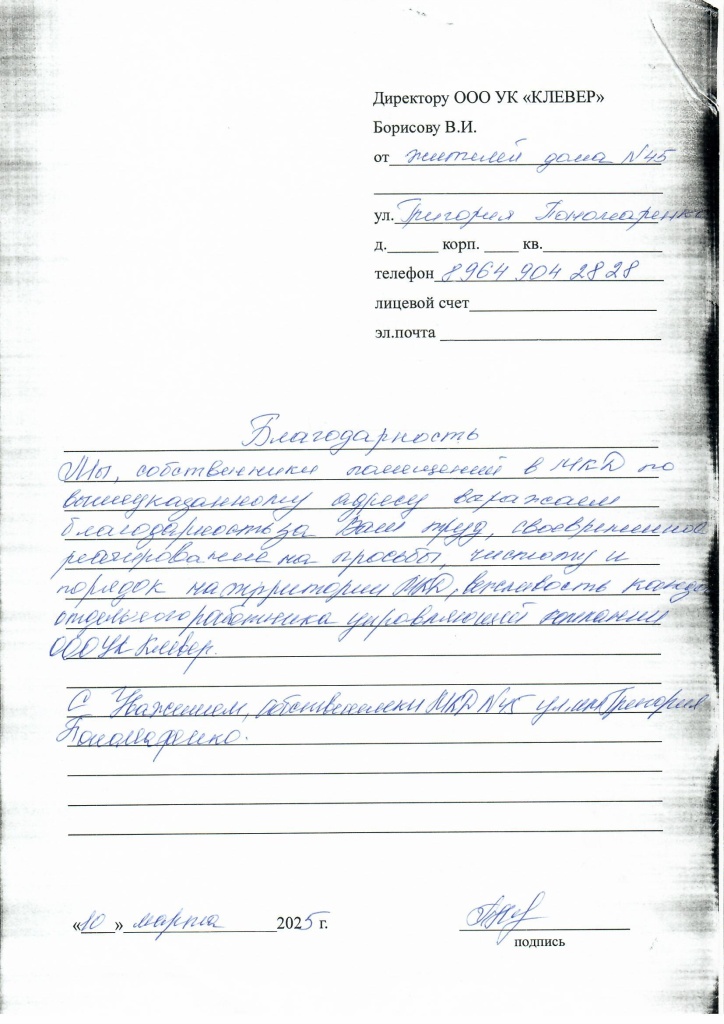 Директору ООО УК «КЛЕВЕР»
Борисову В.И.
от жителей дома N45
ул. Григория Пономаренко
д.______ корп. ____ кв.
телефон 8 964 904 28 28
лицевой счет
эл.почта
Благодарность
Мы, собственники помещений в МКД по
вышеуказанному адресу выражаем
благодарность за Ваш труд, своевременное
реагирование на просьбы, чистоту и
порядок на территории МКД, вежливость каждого
отдельного работника управляющей компании
ООО УК Клевер.
С Уважением, собственники МКД N45 улицы Григория
Пономаренко.
«10» марта 2025 г.
подпись